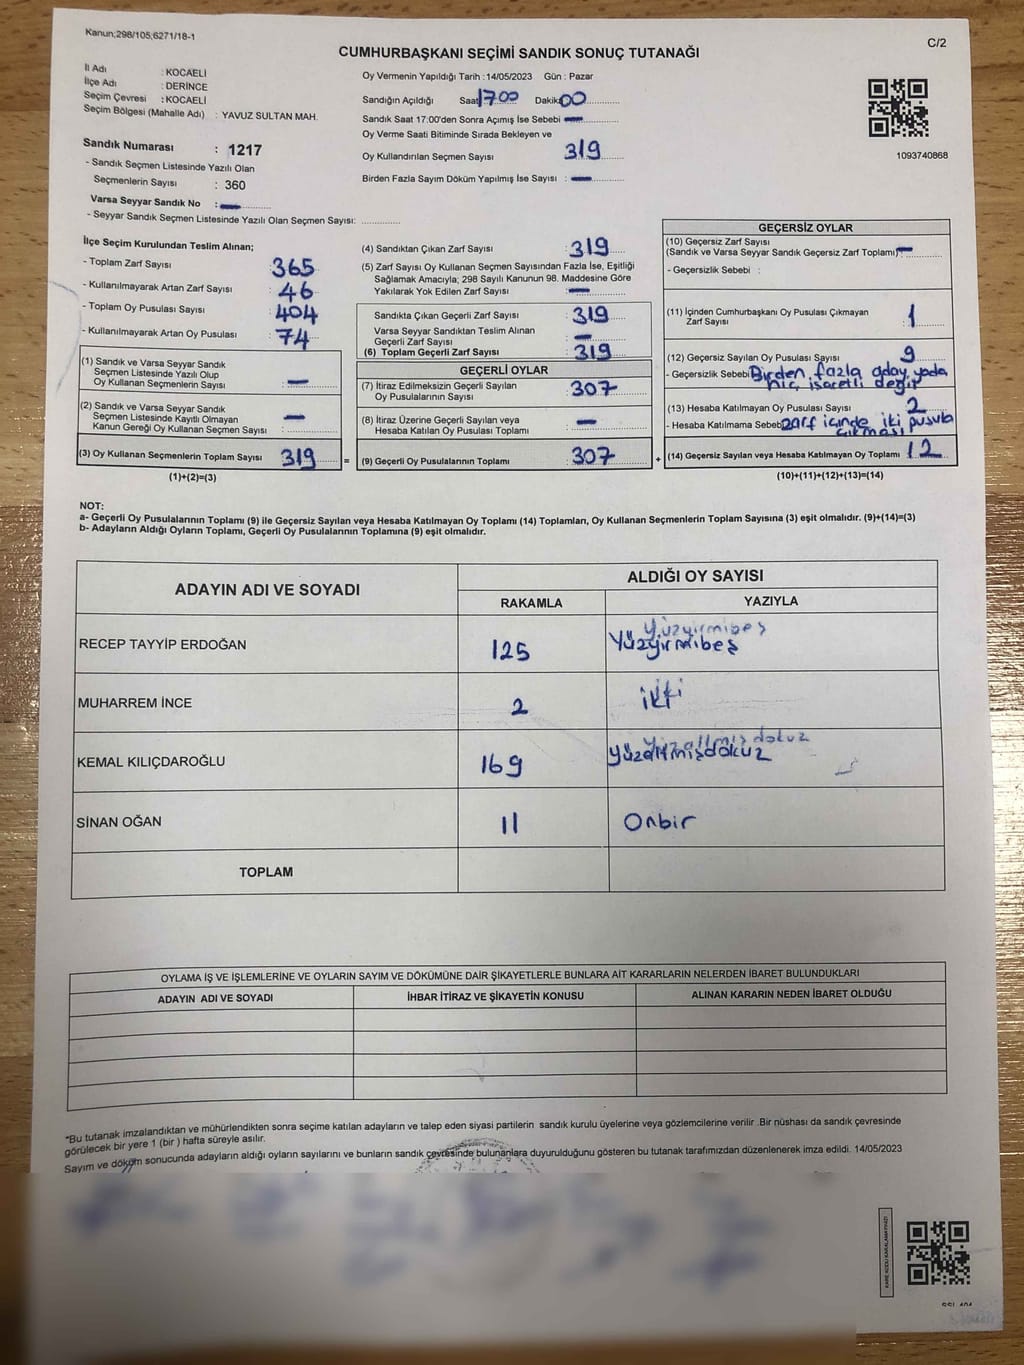 Kanun;298/105;6271/18-1
C/2
CUMHURBAŞKANI SEÇİMİ SANDIK SONUÇ TUTANAĞI
İl Adı : KOCAELİ
İlçe Adı : DERİNCE
Seçim Çevresi : KOCAELİ
Seçim Bölgesi (Mahalle Adı) : YAVUZ SULTAN MAH.
Sandık Numarası : 1217
- Sandık Seçmen Listesinde Yazılı Olan
Seçmenlerin Sayısı : 360
Varsa Seyyar Sandık No : —
- Seyyar Sandık Seçmen Listesinde Yazılı Olan Seçmen Sayısı: ..............
Oy Vermenin Yapıldığı Tarih :14/05/2023 Gün : Pazar
Sandığın Açıldığı Saat 17.00 Dakika 00
Sandık Saat 17:00'den Sonra Açımış İse Sebebi —
Oy Verme Saati Bitiminde Sırada Bekleyen ve
Oy Kullandırılan Seçmen Sayısı 319
Birden Fazla Sayım Döküm Yapılmış İse Sayısı : —
1093740868
İlçe Seçim Kurulundan Teslim Alınan;
- Toplam Zarf Sayısı 365
- Kullanılmayarak Artan Zarf Sayısı : 46
- Toplam Oy Pusulası Sayısı : 404
- Kullanılmayarak Artan Oy Pusulası : 74
(1) Sandık ve Varsa Seyyar Sandık
Seçmen Listesinde Yazılı Olup
Oy Kullanan Seçmenlerin Sayısı : —
(2) Sandık ve Varsa Seyyar Sandık
Seçmen Listesinde Kayıtlı Olmayan
Kanun Gereği Oy Kullanan Seçmen Sayısı : —
(3) Oy Kullanan Seçmenlerin Toplam Sayısı 319 =
(1)+(2)=(3)
(4) Sandıktan Çıkan Zarf Sayısı : 319
(5) Zarf Sayısı Oy Kullanan Seçmen Sayısından Fazla İse, Eşitliği
Sağlamak Amacıyla; 298 Sayılı Kanunun 98. Maddesine Göre
Yakılarak Yok Edilen Zarf Sayısı : —
Sandıkta Çıkan Geçerli Zarf Sayısı : 319
Varsa Seyyar Sandıktan Teslim Alınan
Geçerli Zarf Sayısı : —
(6) Toplam Geçerli Zarf Sayısı : 319
GEÇERLİ OYLAR
(7) İtiraz Edilmeksizin Geçerli Sayılan
Oy Pusulalarının Sayısı : 307
(8) İtiraz Üzerine Geçerli Sayılan veya
Hesaba Katılan Oy Pusulaları Toplamı : —
(9) Geçerli Oy Pusulalarının Toplamı : 307 +
GEÇERSİZ OYLAR
(10) Geçersiz Zarf Sayısı
(Sandık ve Varsa Seyyar Sandık Geçersiz Zarf Toplamı) —
- Geçersizlik Sebebi :
(11) İçinden Cumhurbaşkanı Oy Pusulası Çıkmayan
Zarf Sayısı : 1
(12) Geçersiz Sayılan Oy Pusulası Sayısı : 9
- Geçersizlik Sebebi Birden fazla aday yada
hiç işaretli değil
(13) Hesaba Katılmayan Oy Pusulası Sayısı : 2
- Hesaba Katılmama Sebebi zarf içinde iki pusula
çıkması
(14) Geçersiz Sayılan veya Hesaba Katılmayan Oy Toplamı 12
(10)+(11)+(12)+(13)=(14)
NOT:
a- Geçerli Oy Pusulalarının Toplamı (9) ile Geçersiz Sayılan veya Hesaba Katılmayan Oy Toplamı (14) Toplamları, Oy Kullanan Seçmenlerin Toplam Sayısına (3) eşit olmalıdır. (9)+(14)=(3)
b- Adayların Aldığı Oyların Toplamı, Geçerli Oy Pusulalarının Toplamına (9) eşit olmalıdır.
ADAYIN ADI VE SOYADI ALDIĞI OY SAYISI
RAKAMLA YAZIYLA
RECEP TAYYİP ERDOĞAN 125 Yüzyirmibeş Yüzyirmibeş
MUHARREM İNCE 2 iki
KEMAL KILIÇDAROĞLU 169 Yüzaltmışdokuz Yüzaltmışdokuz
SİNAN OĞAN 11 Onbir
TOPLAM
OYLAMA İŞ VE İŞLEMLERİNE VE OYLARIN SAYIM VE DÖKÜMÜNE DAİR ŞİKAYETLERLE BUNLARA AİT KARARLARIN NELERDEN İBARET BULUNDUKLARI
ADAYIN ADI VE SOYADI İHBAR İTİRAZ VE ŞİKAYETİN KONUSU ALINAN KARARIN NEDEN İBARET OLDUĞU
*Bu tutanak imzalandıktan ve mühürlendikten sonra seçime katılan adayların ve talep eden siyasi partilerin sandık kurulu üyelerine veya gözlemcilerine verilir .Bir nüshası da sandık çevresinde
görülecek bir yere 1 (bir ) hafta süreyle asılır.
Sayım ve döküm sonucunda adayların aldığı oyların sayılarını ve bunların sandık çevresinde bulunanlara duyurulduğunu gösteren bu tutanak tarafımızdan düzenlenerek imza edildi. 14/05/2023
KARE KODU KARALAMAYINIZ!